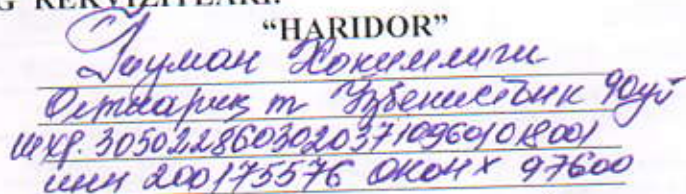 G REKVIZITLARI:
"HARIDOR"
Туман Хокимлиги
Олтиариқ т Ўзбекистон 90уй
шхр. 305022860302037109601018001
инн 200175576 ОКОНХ 97600